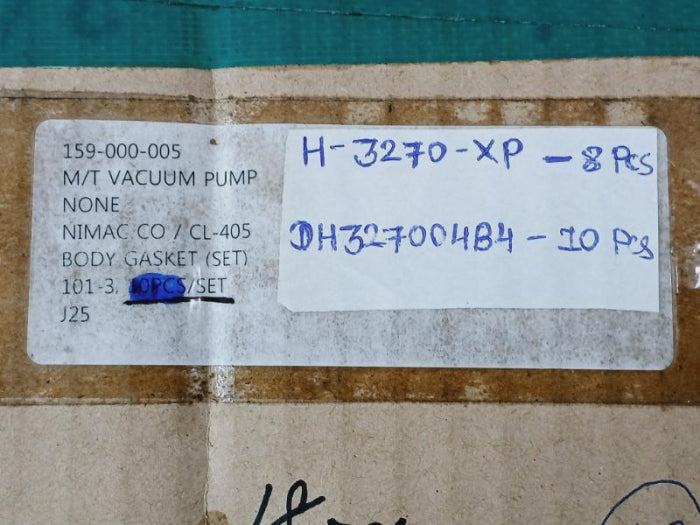 159-000-005
M/T VACUUM PUMP
NONE
NIMAC CO / CL-405
BODY GASKET (SET)
101-3, 10PCS/SET
J25
H-3270-XP - 8 Pcs
DH327004B4 - 10 Pcs